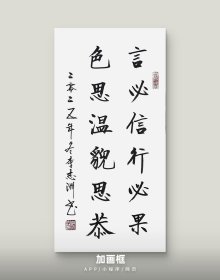 言必信行必果
色思温貌思恭
二零二五年冬李志洲书
加画框
APP/小程序/